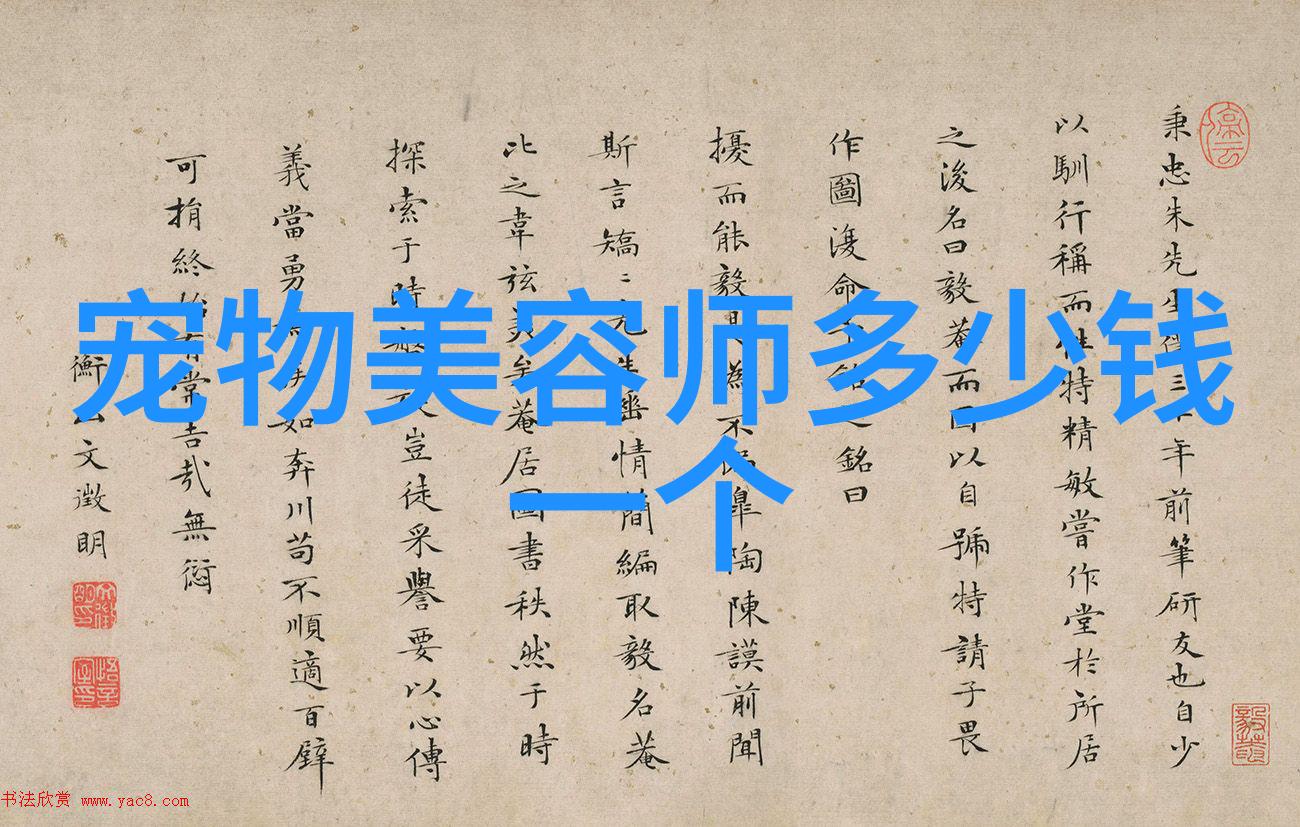 宠物美容师多少钱
一个
秉忠朱先生三十年前筆研友也自少
以馴行稱而性特精敏嘗作堂於所居
之後名曰毅菴而因以自號特請予畏
作圖復命銘曰
擾而能毅是為不皋陶陳謨前聞
斯言矯〻先生情簡編取毅名菴
比之韋弦美矣菴居圖書秩然于時
探索于時敏豈徒采譽要以心傳
義當勇如奔川苟不順適百辟
可捐終始有常吉哉無愆
衡山文徵明
书法欣赏 www.yac8.com